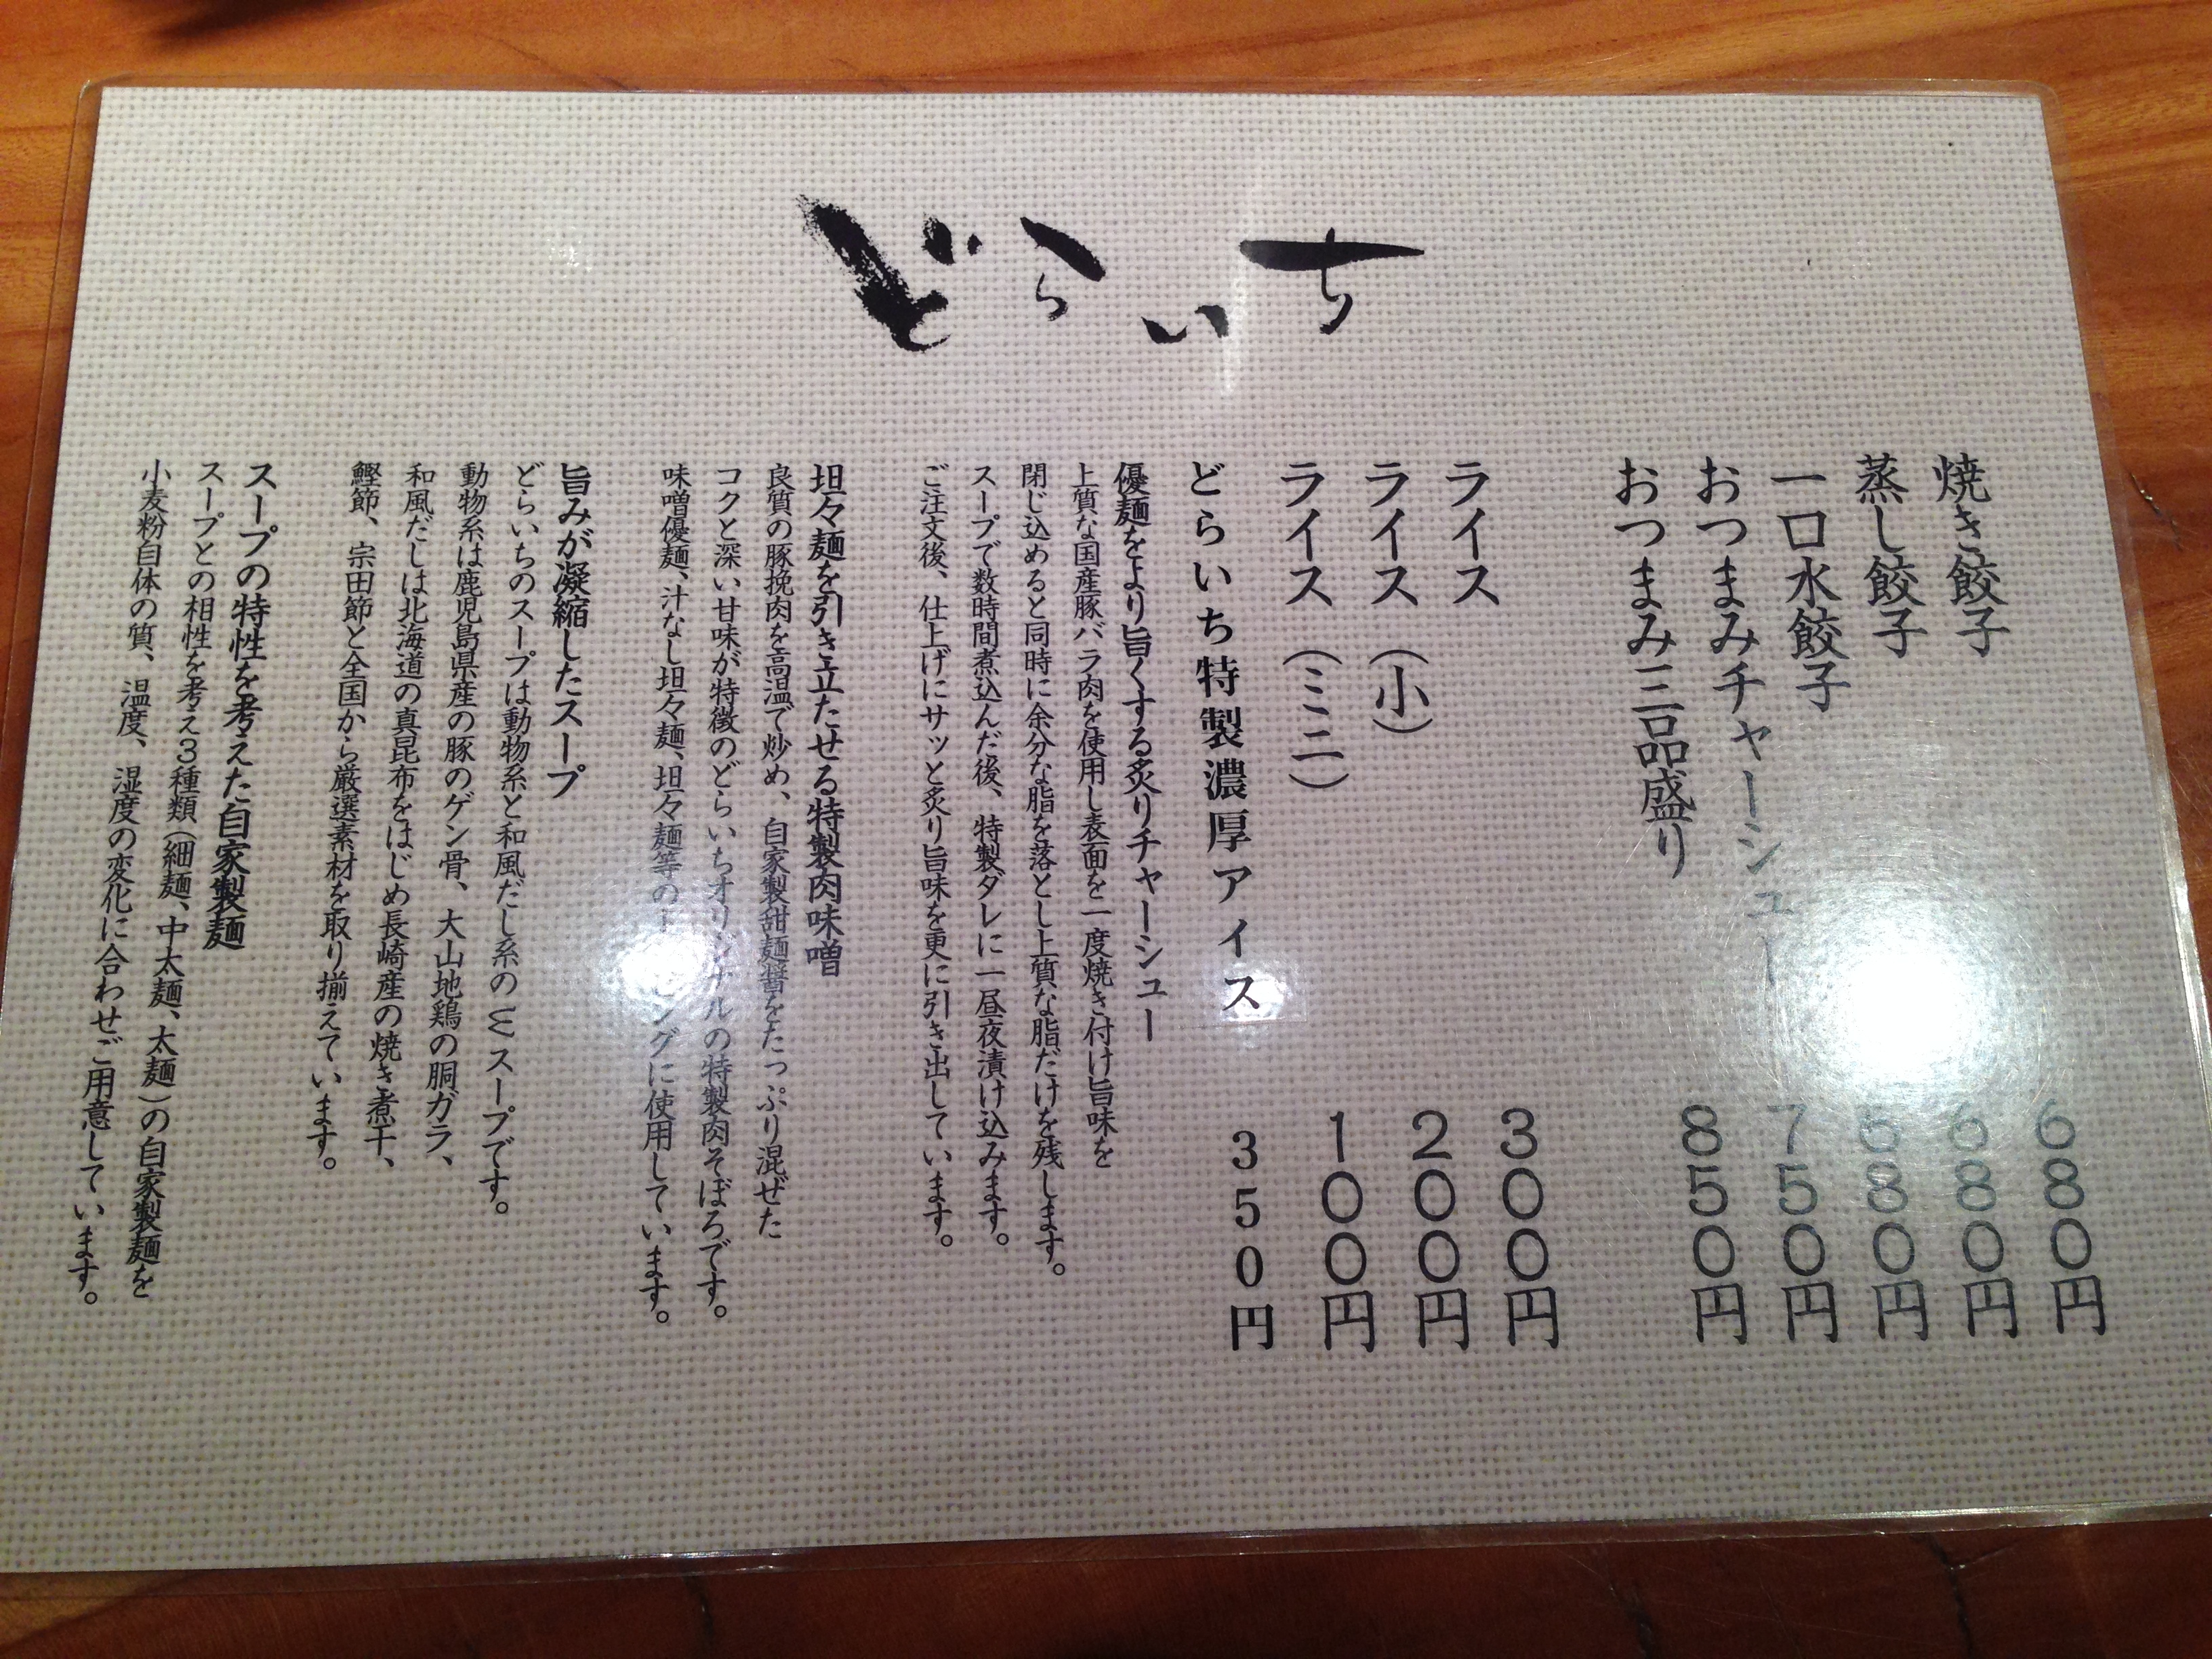 どらいち
焼き餃子 680円
蒸し餃子 680円
一口水餃子 680円
おつまみチャーシュー 750円
おつまみ三品盛り 850円
ライス 300円
ライス（小） 200円
ライス（ミニ） 100円
どらいち特製濃厚アイス 350円
優麺をより旨くする炙りチャーシュー
上質な国産豚バラ肉を使用し表面を一度焼き付け旨味を
閉じ込めると同時に余分な脂を落とし上質な脂だけを残します。
スープで数時間煮込んだ後、特製ダレに一昼夜漬け込みます。
ご注文後、仕上げにサッと炙り旨味を更に引き出しています。
坦々麺を引き立たせる特製肉味噌
良質の豚挽肉を高温で炒め、自家製甜麺醤をたっぷり混ぜた
コクと深い甘味が特徴のどらいちオリジナルの特製肉そぼろです。
味噌優麺、汁なし坦々麺、坦々麺等のトッピングに使用しています。
旨みが凝縮したスープ
どらいちのスープは動物系と和風だし系のWスープです。
動物系は鹿児島県産の豚のゲン骨、大山地鶏の胴ガラ、
和風だしは北海道の真昆布をはじめ長崎産の焼き煮干、
鰹節、宗田節と全国から厳選素材を取り揃えています。
スープの特性を考えた自家製麺
スープとの相性を考え3種類（細麺、中太麺、太麺）の自家製麺を
小麦粉自体の質、温度、湿度の変化に合わせご用意しています。